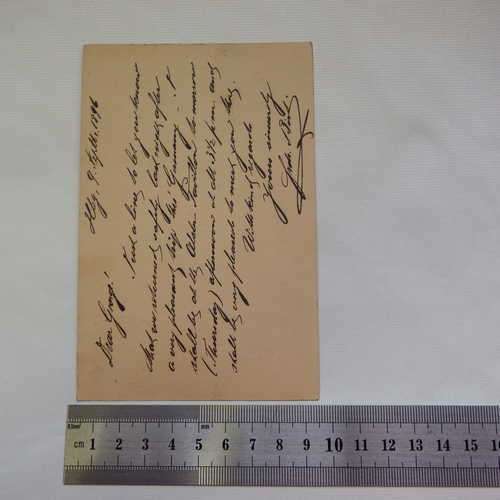 Hbg 9 Septbr. 1896
Dear Georg!
Just a line to let you know
that we returned safely last night after
a very pleasant trip thro Germany. I
shall be at the Alster to-morrow
(Thursday) afternoon at abt 3½ p.m. and
shall be very pleased to meet you there
With kind regards
Yours sincerely
0.5mm mm
cm 1 2 3 4 5 6 7 8 9 10 11 12 13 14 15 16